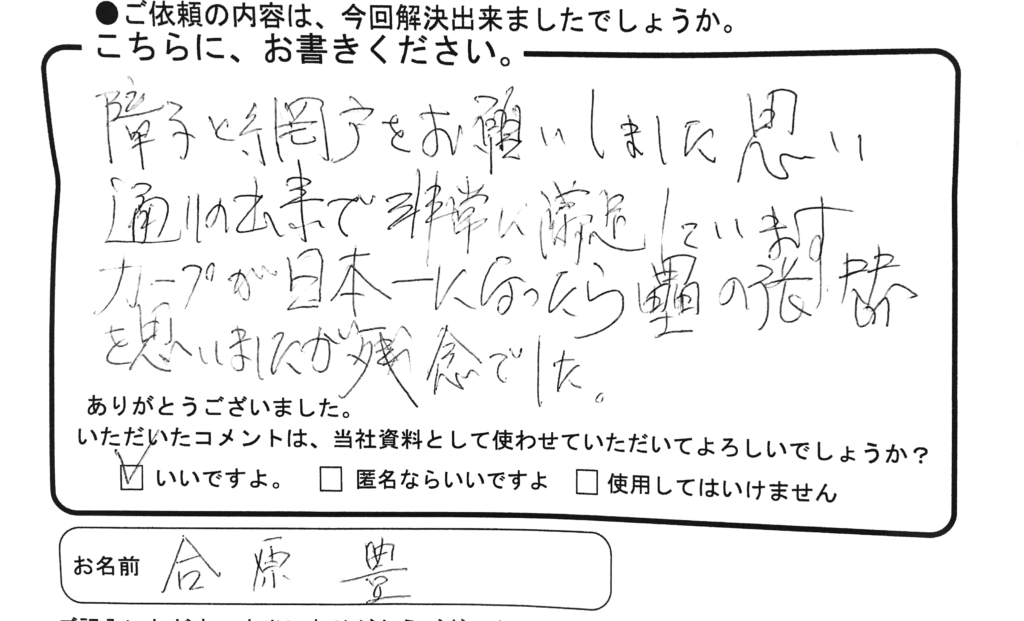 ●ご依頼の内容は、今回解決出来ましたでしょうか。
こちらに、お書きください。
障子と網戸をお願いしました思い
通りの出来で非常に満足しています
カープが日本一になったら畳の張替
を思いましたが残念でした。
ありがとうございました。
いただいたコメントは、当社資料として使わせていただいてよろしいでしょうか？
いいですよ。 匿名ならいいですよ 使用してはいけません
お名前 合原 豊